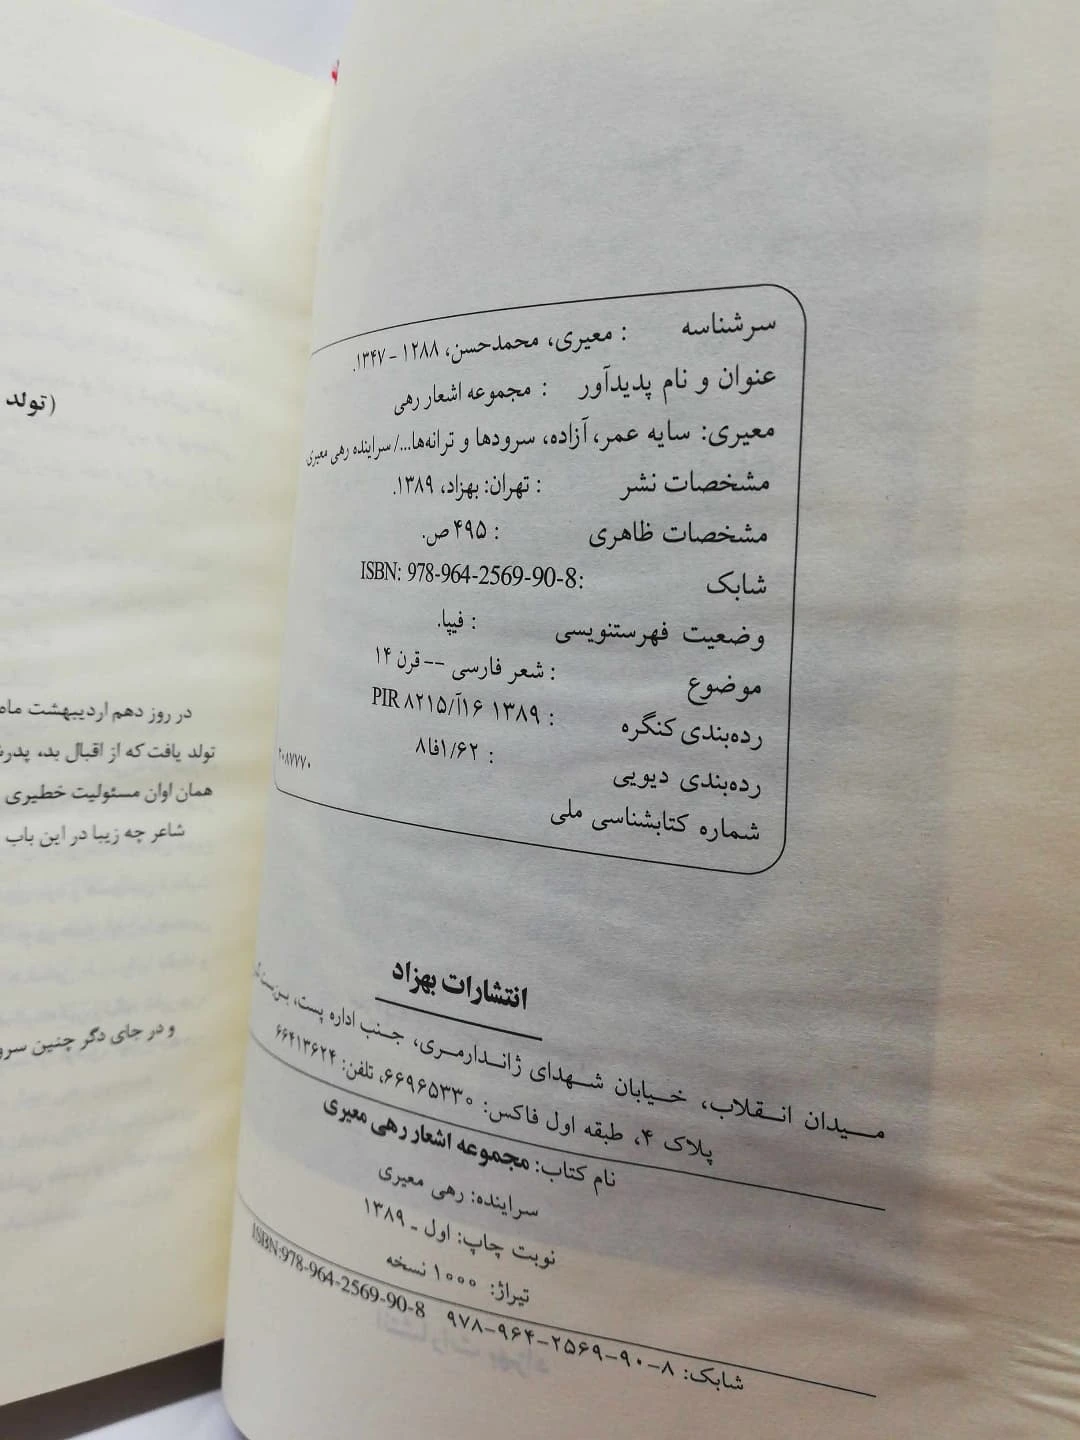 سرشناسه : معیری، محمدحسن، ۱۲۸۸ - ۱۳۴۷.
عنوان و نام پدیدآور : مجموعه اشعار رهی
معیری: سایه عمر، آزاده، سرودها و ترانه‌ها.../ سراینده رهی معیری
مشخصات نشر : تهران: بهزاد، ۱۳۸۹.
مشخصات ظاهری : ۴۹۵ ص.
شابک :ISBN: 978-964-2569-90-8
وضعیت فهرستنویسی : فیپا.
موضوع : شعر فارسی -- قرن ۱۴
رده‌بندی کنگره : ۱۳۸۹ ۱۶آ/۸۲۱۵ PIR
رده‌بندی دیویی : ۱/۶۲فا۸
شماره کتابشناسی ملی ۲۰۸۷۷۷۰
انتشارات بهزاد
میدان انقلاب، خیابان شهدای ژاندارمری، جنب اداره پست،
پلاک ۴، طبقه اول فاکس: ۶۶۹۶۵۳۳۰، تلفن: ۶۶۴۱۳۶۲۴
نام کتاب: مجموعه اشعار رهی معیری
سراینده: رهی معیری
نوبت چاپ: اول ـ ۱۳۸۹
تیراژ: ۱۰۰۰ نسخه
شابک: ۸-۹۰-۲۵۶۹-۹۶۴-۹۷۸ ISBN:978-964-2569-90-8
(تولد
در روز دهم اردیبهشت ماه
تولد یافت که از اقبال بد،
همان اوان مسئولیت خطیری
شاعر چه زیبا در این باب
و در جای دگر چنین